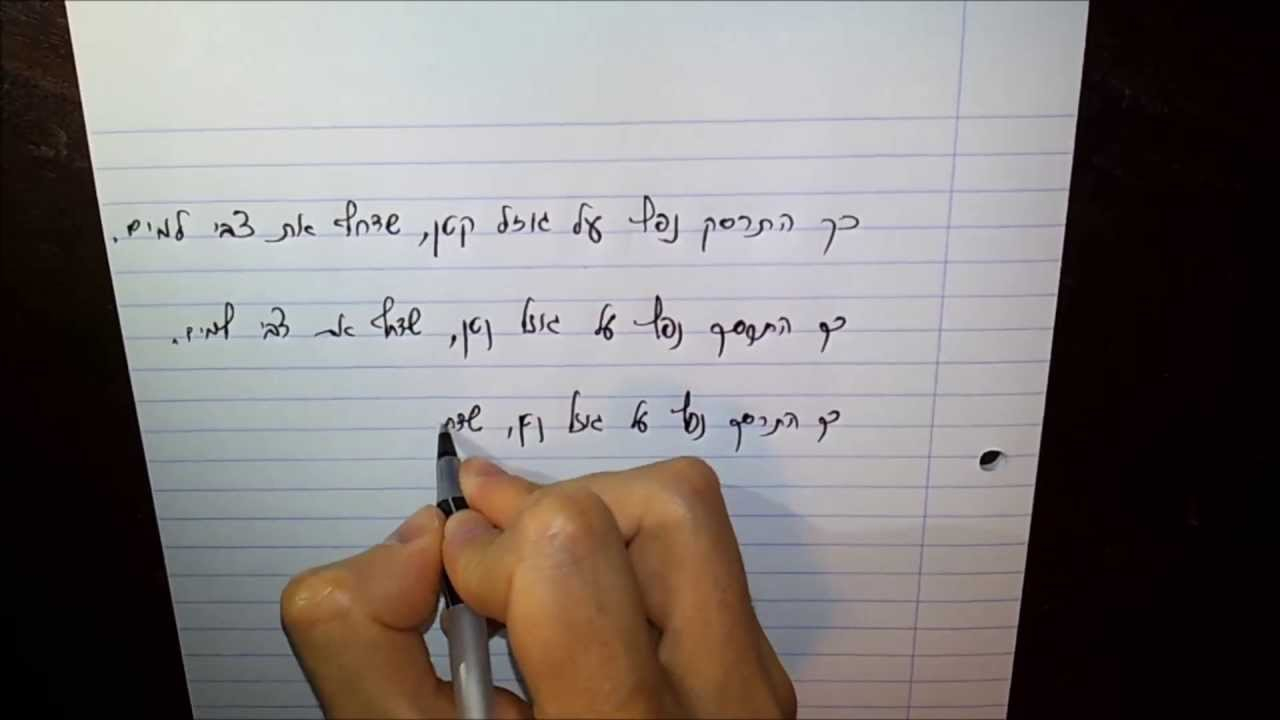 כך התרסק נפץ על גוזל קטן, שדחף את צבי למים.
כך התרסק נפץ על גוזל קטן, שדחף את צבי למים.
כך התרסק נפץ על גוזל קטן, שדח